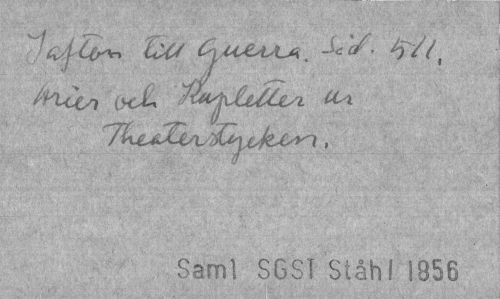 Jafton till Guerra. Sid. 511.
Arier och Kupletter ur
Theaterstycken.
Saml SGST Ståhl 1856